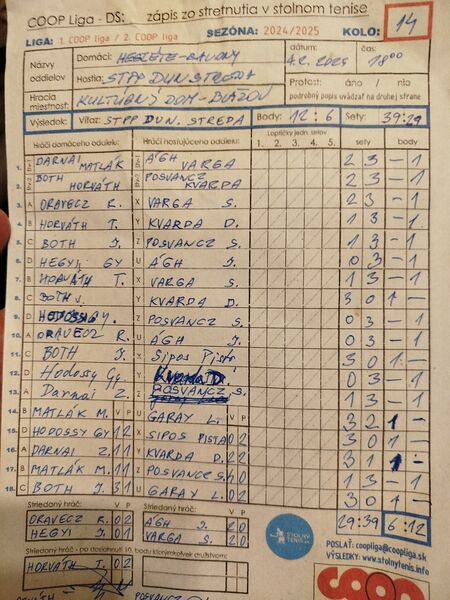 COOP Liga - DS: zápis zo stretnutia v stolnom tenise
LIGA: 1. COOP liga / 2. COOP liga SEZÓNA: 2024/2025 KOLO: 14
Názov oddielov
Domáci:
dátum: 18:00
Hostia: STPP DUN. STREDA
Protest: áno / nie
podrobný popis uvádzať na druhej strane
Hracia miestnosť: KULTÚRNY DOM-
Výsledok: Víťaz: STPP DUN. STREDA Body: 12:6 Sety: 39:29
Hráči domáceho oddielu: Hráči hosťujúceho oddielu: Loptičky jedn. setov sety body
1. 2. 3. 4. 5.
1. DARNAI MATLÁK ÁGH VARGA 2 3 - 1
2. BOTH HORVÁTH POSVANCZ KVARDA 2 3 - 1
3. A ORAVECZ R. X VARGA S. 2 3 - 1
4. B HORVÁTH T. Y KVARDA D. 1 3 - 1
5. C BOTH J. Z POSVANCZ S. 1 3 - 1
6. D HEGYI GY U ÁGH J. 0 3 - 1
7. B HORVÁTH T. X VARGA S. 1 3 - 1
8. C BOTH J. Y KVARDA D. 3 0 1 -
9. D HODOSSY GY. Z POSVANCZ S. 0 3 - 1
10. A ORAVECZ R. U ÁGH J. 0 3 - 1
11. C BOTH J. X SIPOS PISTA 3 0 1 -
12. D Hodossy Gy. Y KVARDA D. 0 3 - 1
13. A Darnai Z. Z POSVANCZ S. 1 3 - 1
14. B MATLÁK M. V P U GARAY L. V P 3 2 1 -
15. D HODOSSY GY 1 2 X SIPOS PISTA 0 2 3 0 1 -
16. A DARNAI Z. 1 1 Y KVARDA D. 2 2 3 1 1 -
17. B MATLÁK M. 1 1 Z POSVANCZ S. 4 0 1 3 - 1
18. C BOTH J. 3 1 U GARAY L. 0 2 3 0 1 -
Striedaný hráč: Striedaný hráč: 29:39 6:12
ORAVECZ R. 0 2 ÁGH J. 2 0
HEGYI 0 1 VARGA S. 2 0
STOLNÝ TENIS
POSLAŤ: coopliga@coopliga.sk
VÝSLEDKY: www.stolnytenis.info
Striedaný hráč - po dosiahnutí 10. bodu ktorýmkoľvek družstvom:
HORVÁTH T. 0 2
COOP